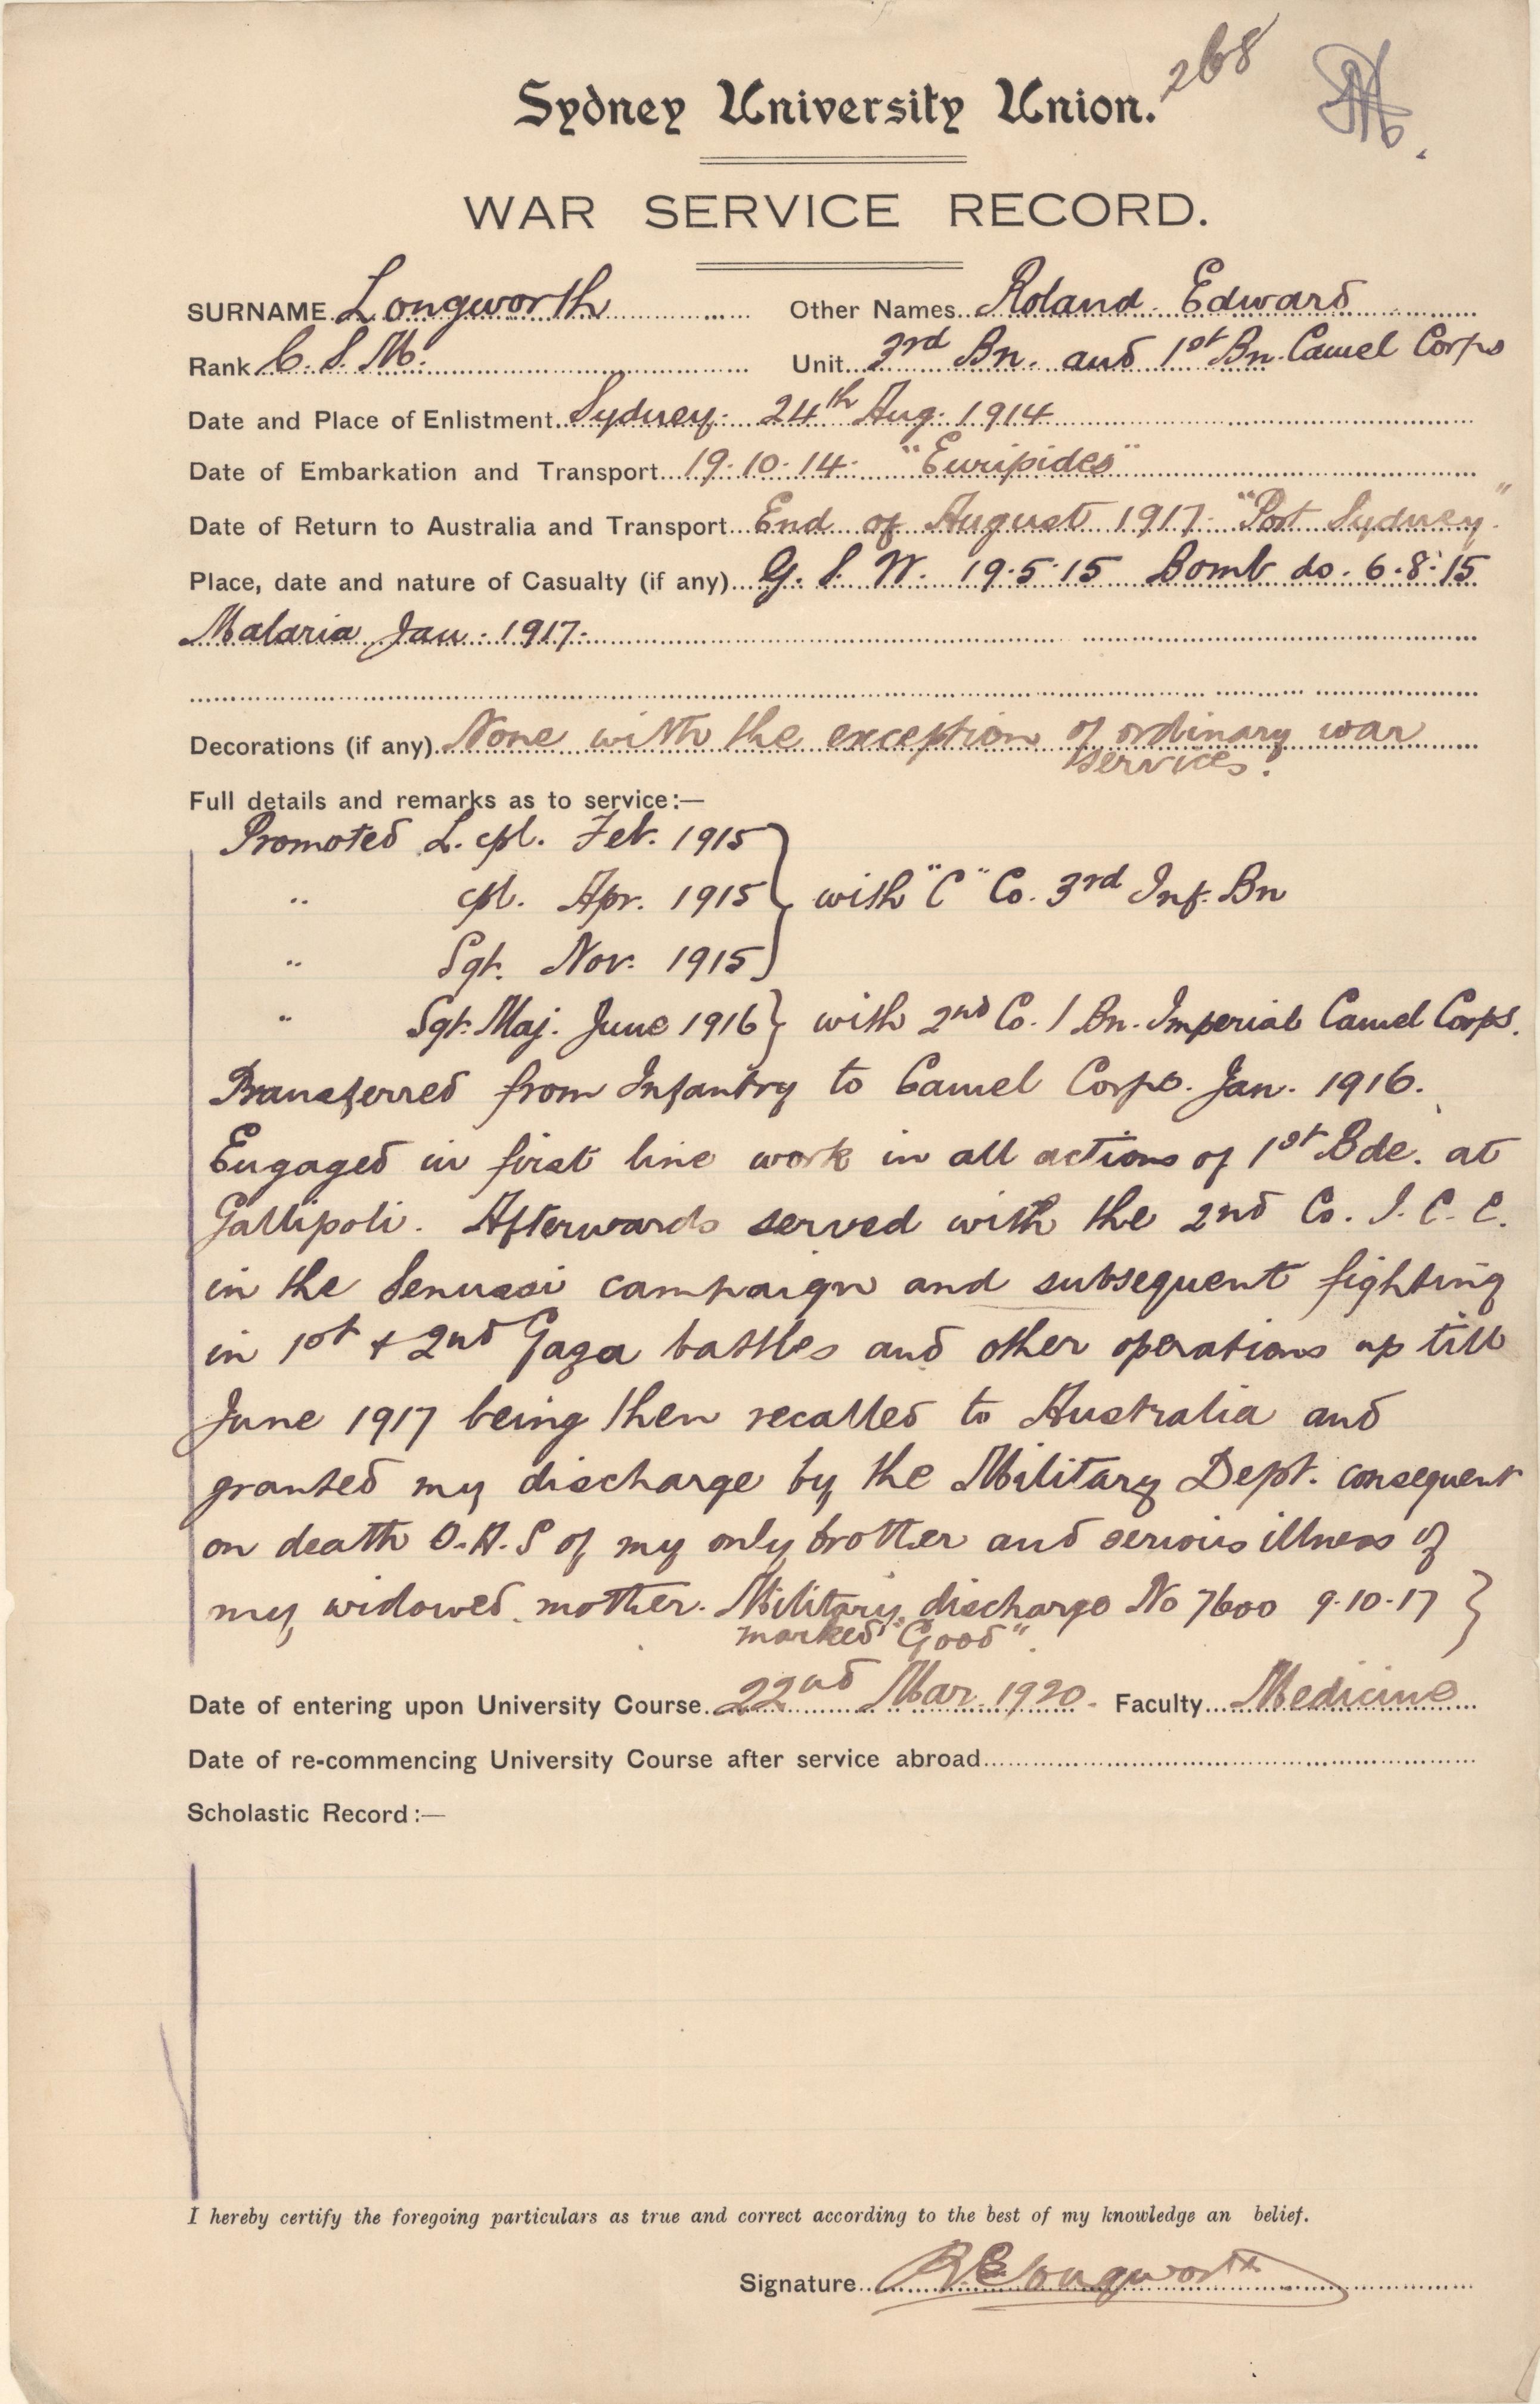 268
Sydney University Union.
WAR SERVICE RECORD.
SURNAME Longworth Other Names Roland Edward
Rank C. S. M. Unit 3rd Bn. and 1st Bn. Camel Corps
Date and Place of Enlistment Sydney. 24th Aug. 1914
Date of Embarkation and Transport 19.10.14. "Euripides"
Date of Return to Australia and Transport End of August 1917. "Port Sydney"
Place, date and nature of Casualty (if any) G. S. W. 19.5.15 Bomb do. 6.8.15
Malaria Jan. 1917.
Decorations (if any) None with the exception of ordinary war
services.
Full details and remarks as to service:—
Promoted L. cpl. Feb. 1915
" cpl. Apr. 1915 } with "C" Co. 3rd Inf. Bn
" Sgt. Nov. 1915
" Sgt. Maj. June 1916 } with 2nd Co. 1 Bn. Imperial Camel Corps.
Transferred from Infantry to Camel Corps. Jan. 1916.
Engaged in first line work in all actions of 1st Bde. at
Gallipoli. Afterwards served with the 2nd Co. I. C. C.
in the Senussi campaign and subsequent fighting
in 1st + 2nd Gaza battles and other operations up till
June 1917 being then recalled to Australia and
granted my discharge by the Military Dept. consequent
on death O.A.S of my only brother and serious illness of
my widowed mother. Military discharge No 7600 9.10.17 }
marked "Good".
Date of entering upon University Course 22nd Mar. 1920. Faculty Medicine
Date of re-commencing University Course after service abroad
Scholastic Record:—
I hereby certify the foregoing particulars as true and correct according to the best of my knowledge an belief.
Signature R E Longworth